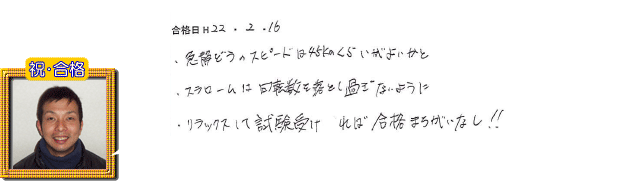 合格日 H22.2.16
・急制動のスピードは45kmくらいがよいかと
祝・合格
・スラロームは回転数を落とし過ぎないように
・リラックスして試験受ければ合格まちがいなし!!